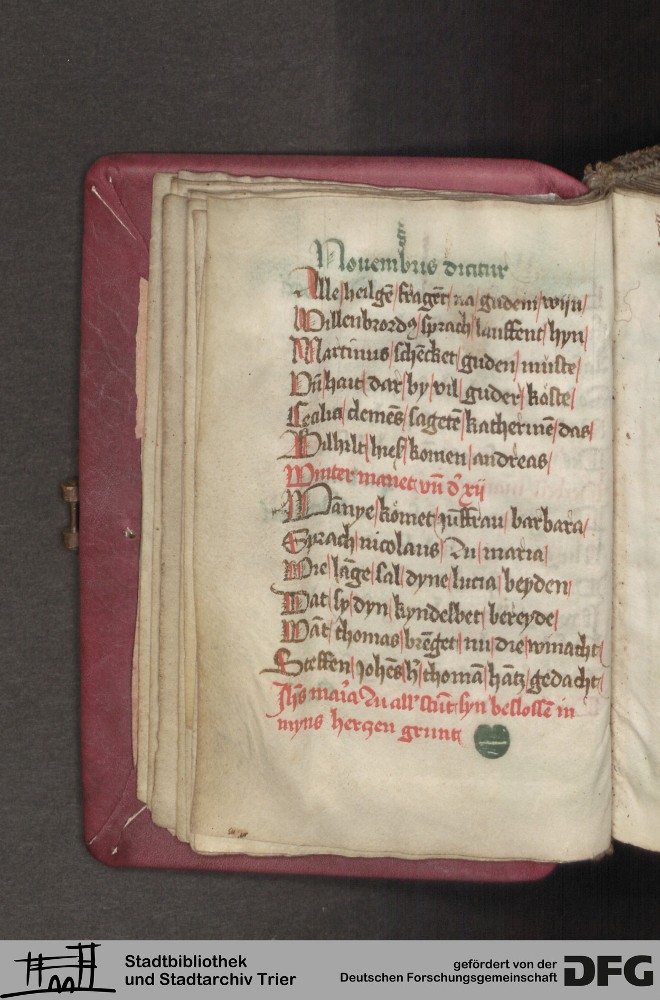 Nouembris dicitur
Alle/heilgē/fragēt/na/gudem/wijn/
Willenbrordꝯ/sprach/lauffent/hyn/
Martinus/schēcket/guden/muste/
Vn̄/hait/dar/by/vil/guder/kaste/
Cecilia/clemēs/sagetē/katherinē/das/
Bilhilt/hieß/komen/andreas/
Winter manet vn̄ d' xij
Wānye/kōmet/jūffrau/barbara/
Sprach/nicolaus/Du/maria/
Wie/lāge/sal/dyne/lucia/beyden/
Wat/sy/dyn/kyndelbet/bereyde/
Wāt/thomas/brēget/nu/die/winacht/
Steffen/johēs/h'/thomā/hātz/gedacht/
Jhs maria Du all' stūt syn beslossē in
myns hertzen grunt
Stadtbibliothek
und Stadtarchiv Trier
gefördert von der
Deutschen Forschungsgemeinschaft
DFG